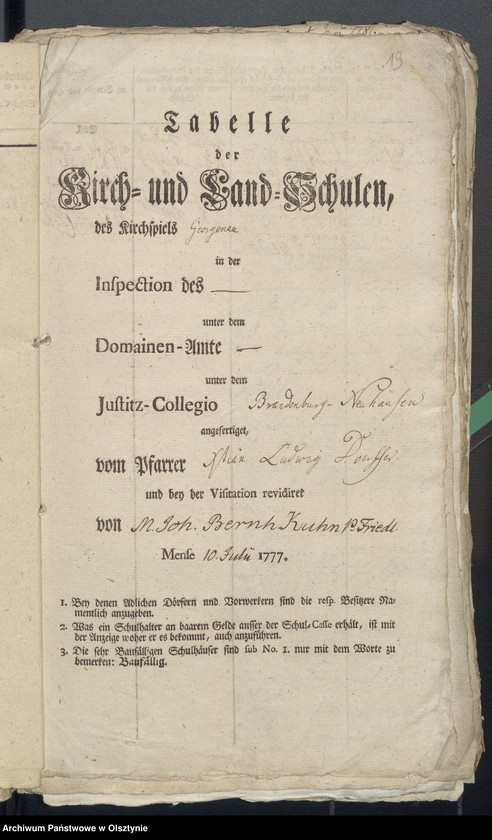 13
Tabelle
der
Kirch- und Land-Schulen,
des Kirchspiels Georgenau
in der
Inspection des —
unter dem
Domainen-Amte —
unter dem
Justitz-Collegio Brandenburg-Neuhausen
angefertiget,
vom Pfarrer Xstian Ludwig
und bey der Visitation revidiret
von M. Joh. Bernh. Kuhn P. Friedl.
Mense 10. Julii 1777.
1. Bey denen Adlichen Dörfern und Vorwerkern sind die resp. Besitzere Na-
mentlich anzugeben.
2. Was ein Schulhalter an baarem Gelde ausser der Schul-Casse erhält, ist mit
der Anzeige woher er es bekommt, auch anzuführen.
3. Die sehr Baufälligen Schulhäuser sind sub No. 1. nur mit dem Worte zu
bemerken: Baufällig.
Archiwum Państwowe w Olsztynie